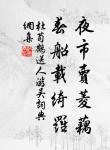 夜市賣菱藕
春船載綺羅
杜荀鶴送人游吴詞典
網集